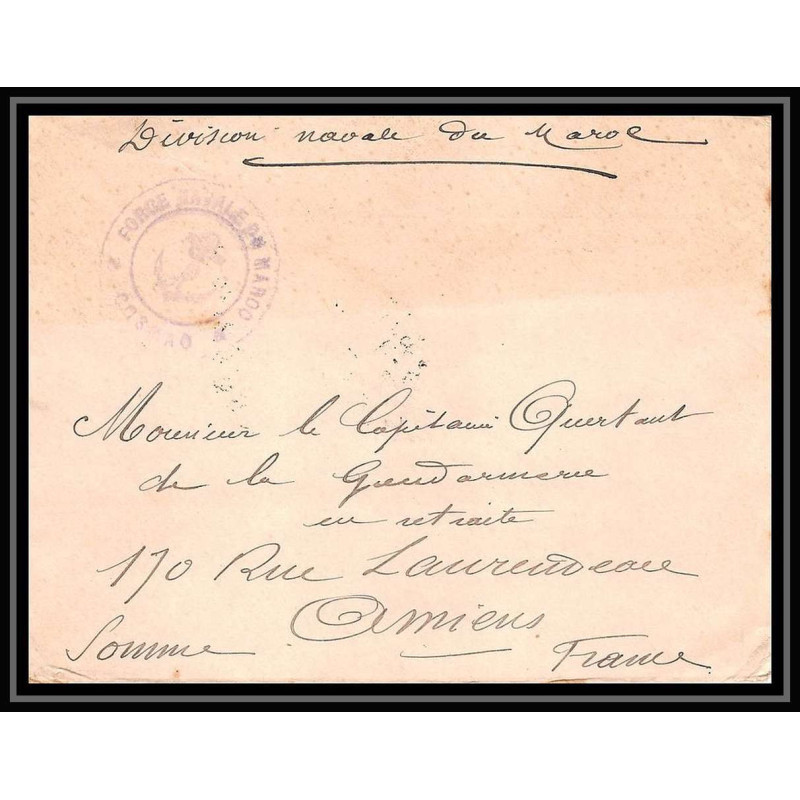 Division navale du Maroc
FORCE NAVALE DU MAROC
COSMAO
Monsieur le Capitaine Quertant
de la Gendarmerie
en retraite
170 Rue Laurendeau
Amiens
Somme France